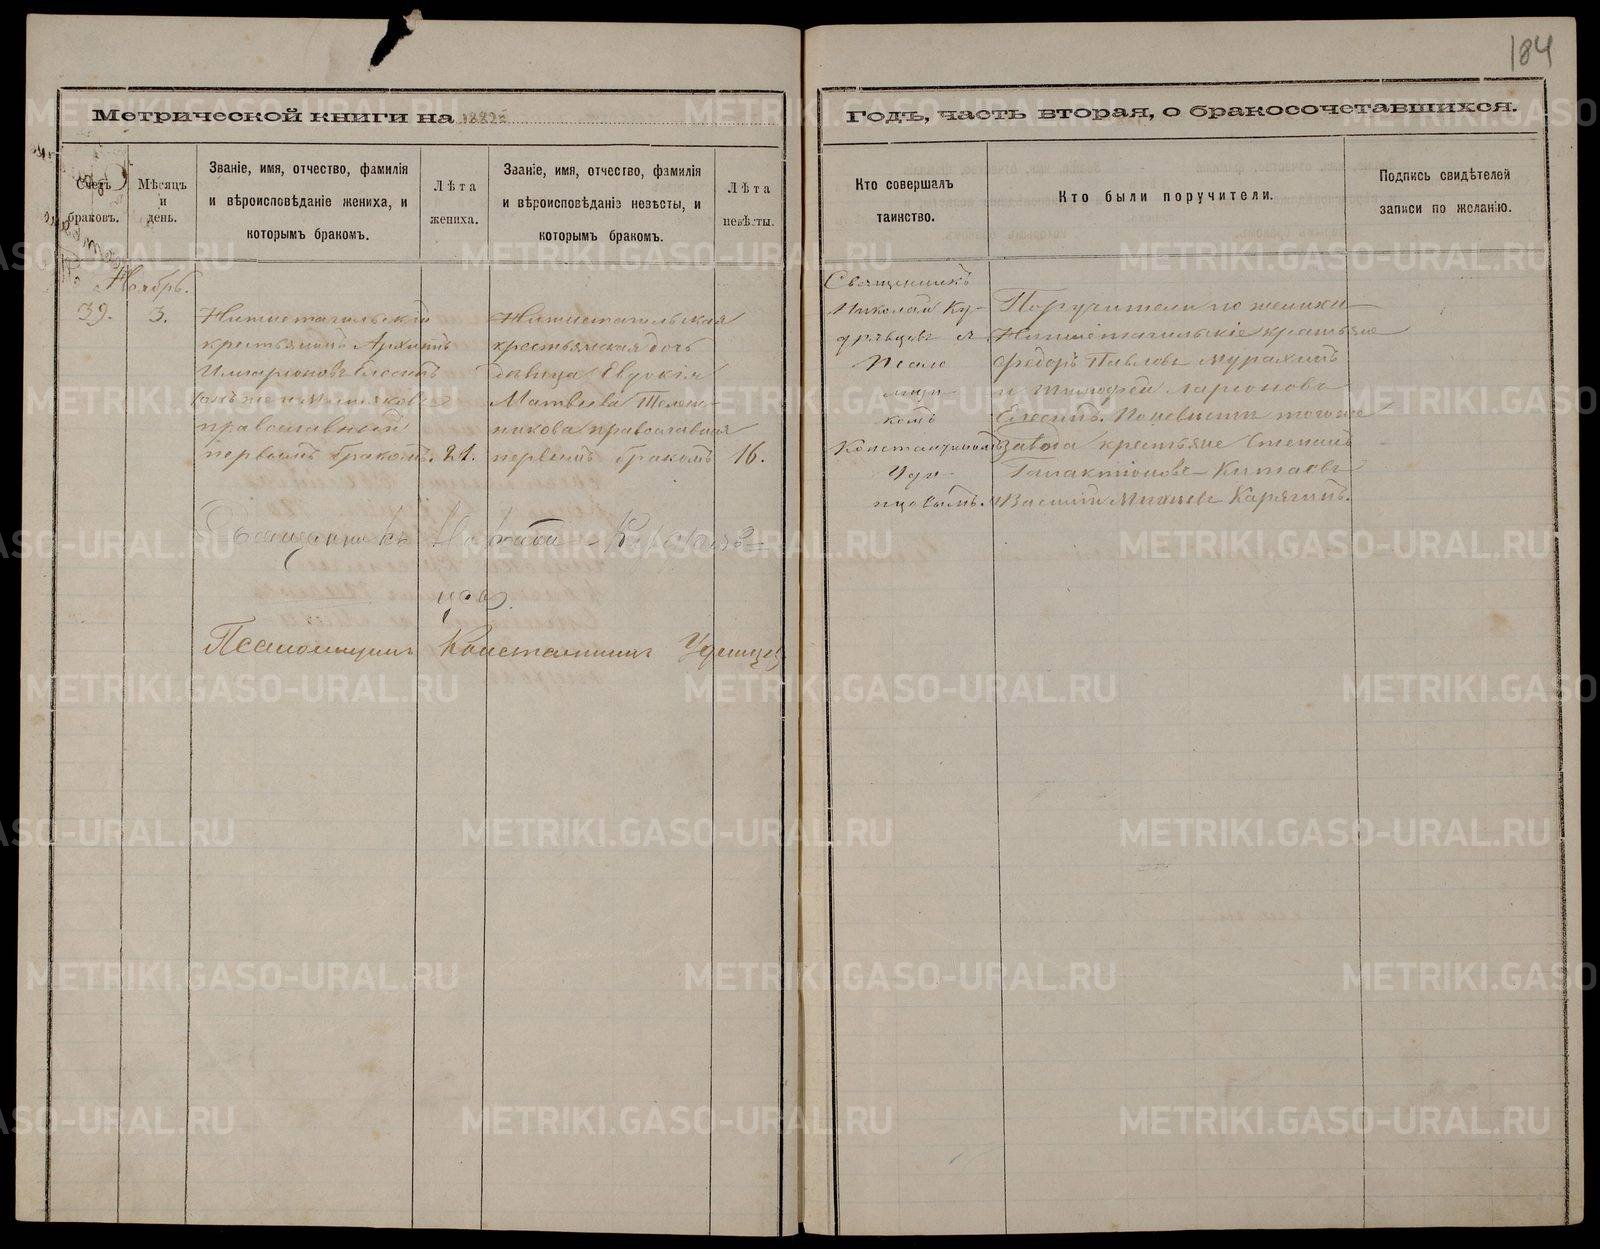 184
Метрической книги на
Годъ, часть вторая, о бракосочетавшихся.
Счетъ браковъ.
Мѣсяцъ и день.
Званіе, имя, отчество, фамилія
и вѣроисповѣданіе жениха, и
которымъ бракомъ.
Лѣта жениха.
Званіе, имя, отчество, фамилія
и вѣроисповѣданіе невѣсты, и
которымъ бракомъ.
Лѣта невѣсты.
Кто совершалъ
таинство.
Кто были поручители.
Подпись свидѣтелей
записи по желанію.
Ноябрь.
39.
3.
Нижнетагильскій
крестьянинъ Архипъ
Илларіоновъ
православный
первымъ бракомъ. 21.
Нижнетагильская
крестьянская дочь
дѣвица Евдокія
Матвѣева
православная
первымъ бракомъ 16.
Священникъ
Николай Ку-
дрявцевъ съ
Псало
мщи
комъ
Константиномъ
Уди-
нцовымъ.
Поручители по женихѣ
Нижнетагильскіе крестьяне
Ѳедоръ Павловъ Мурахинъ
и Тимофей Ларіоновъ
По невѣстѣ того же
завода крестьяне Степанъ
Галактіоновъ Китаевъ
и Василій Карягинъ.
Священникъ Николай Кудряв-
цевъ.
Псаломщикъ Константинъ Удинцев
METRIKI.GASO-URAL.RU